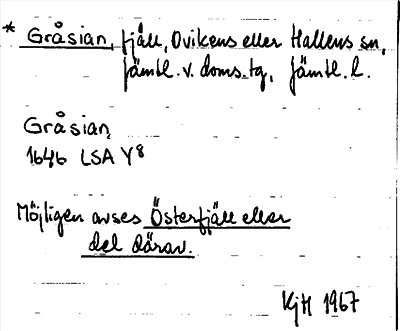 * Gråsian, fjäll, Ovikens eller Hallens sn,
Jämtl. v. doms.tg, Jämtl. l.
Gråsian,
1646 LSA Y8
Möjligen avses Österfjäll eller
del därav.
KjH 1967